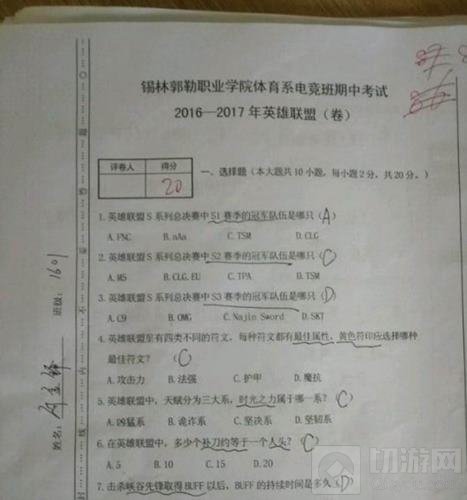 锡林郭勒职业学院体育系电竞班期中考试
2016—2017年英雄联盟（卷）
评卷人 得分
20
一、选择题（本大题共10小题，每小题2分，共20分。）
1.英雄联盟S系列总决赛中S1赛季的冠军队伍是哪只（A）
A.FNC B.aAa C.TSM D.CLG
2.英雄联盟S系列总决赛中S2赛季的冠军队伍是哪只（C）
A.M5 B.CLG.EU C.TPA D.TSM
3.英雄联盟S系列总决赛中S3赛季的冠军队伍是哪只（D）
A.C9 B.OMG C.Najin Sword D.SKT
4.英雄联盟里有四类不同的符文，每种符文都有最佳属性，黄色符印应选择哪种
最佳符文？（C）
A.攻击力 B.法强 C.护甲 D.魔抗
5.英雄联盟中，天赋分为三大系，时光之力属于哪一系？（C）
A.凶猛系 B.诡诈系 C.坚决系 D.坚韧系
6.在英雄联盟中，多少个补刀约等于一个人头？（C）
A.5 B.10 C.15 D.20
7.击杀峡谷先锋取得BUFF以后，BUFF的持续时间是多久（）
班级：1601
姓名：
切游网